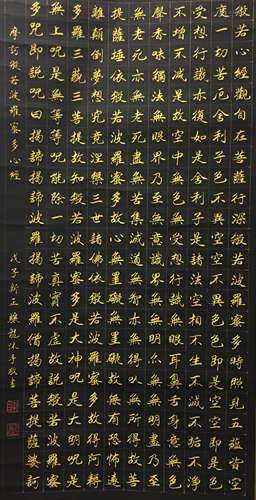 般若心經觀自在菩薩行深般若波羅蜜多時照見五蘊皆空
度一切苦厄舍利子色不異空空不異色色即是空空即是色
受想行識亦復如是舍利子是諸法空相不生不滅不垢不淨
不增不減是故空中無色無受想行識無眼耳鼻舌身意無色
聲香味觸法無眼界乃至無意識界無無明亦無無明盡乃至
無老死亦無老死盡無苦集滅道無智亦無得以無所得故菩
提薩埵依般若波羅蜜多故心無罣礙無罣礙故無有恐怖遠
離顛倒夢想究竟涅槃三世諸佛依般若波羅蜜多故得阿耨
多羅三藐三菩提故知般若波羅蜜多是大神咒是大明咒是
無上咒是無等等咒能除一切苦真實不虛故說般若波羅蜜
多咒即說咒曰揭諦揭諦波羅揭諦波羅僧揭諦菩提薩婆訶
摩訶般若波羅蜜多心經 戊子新正 龍 敬書